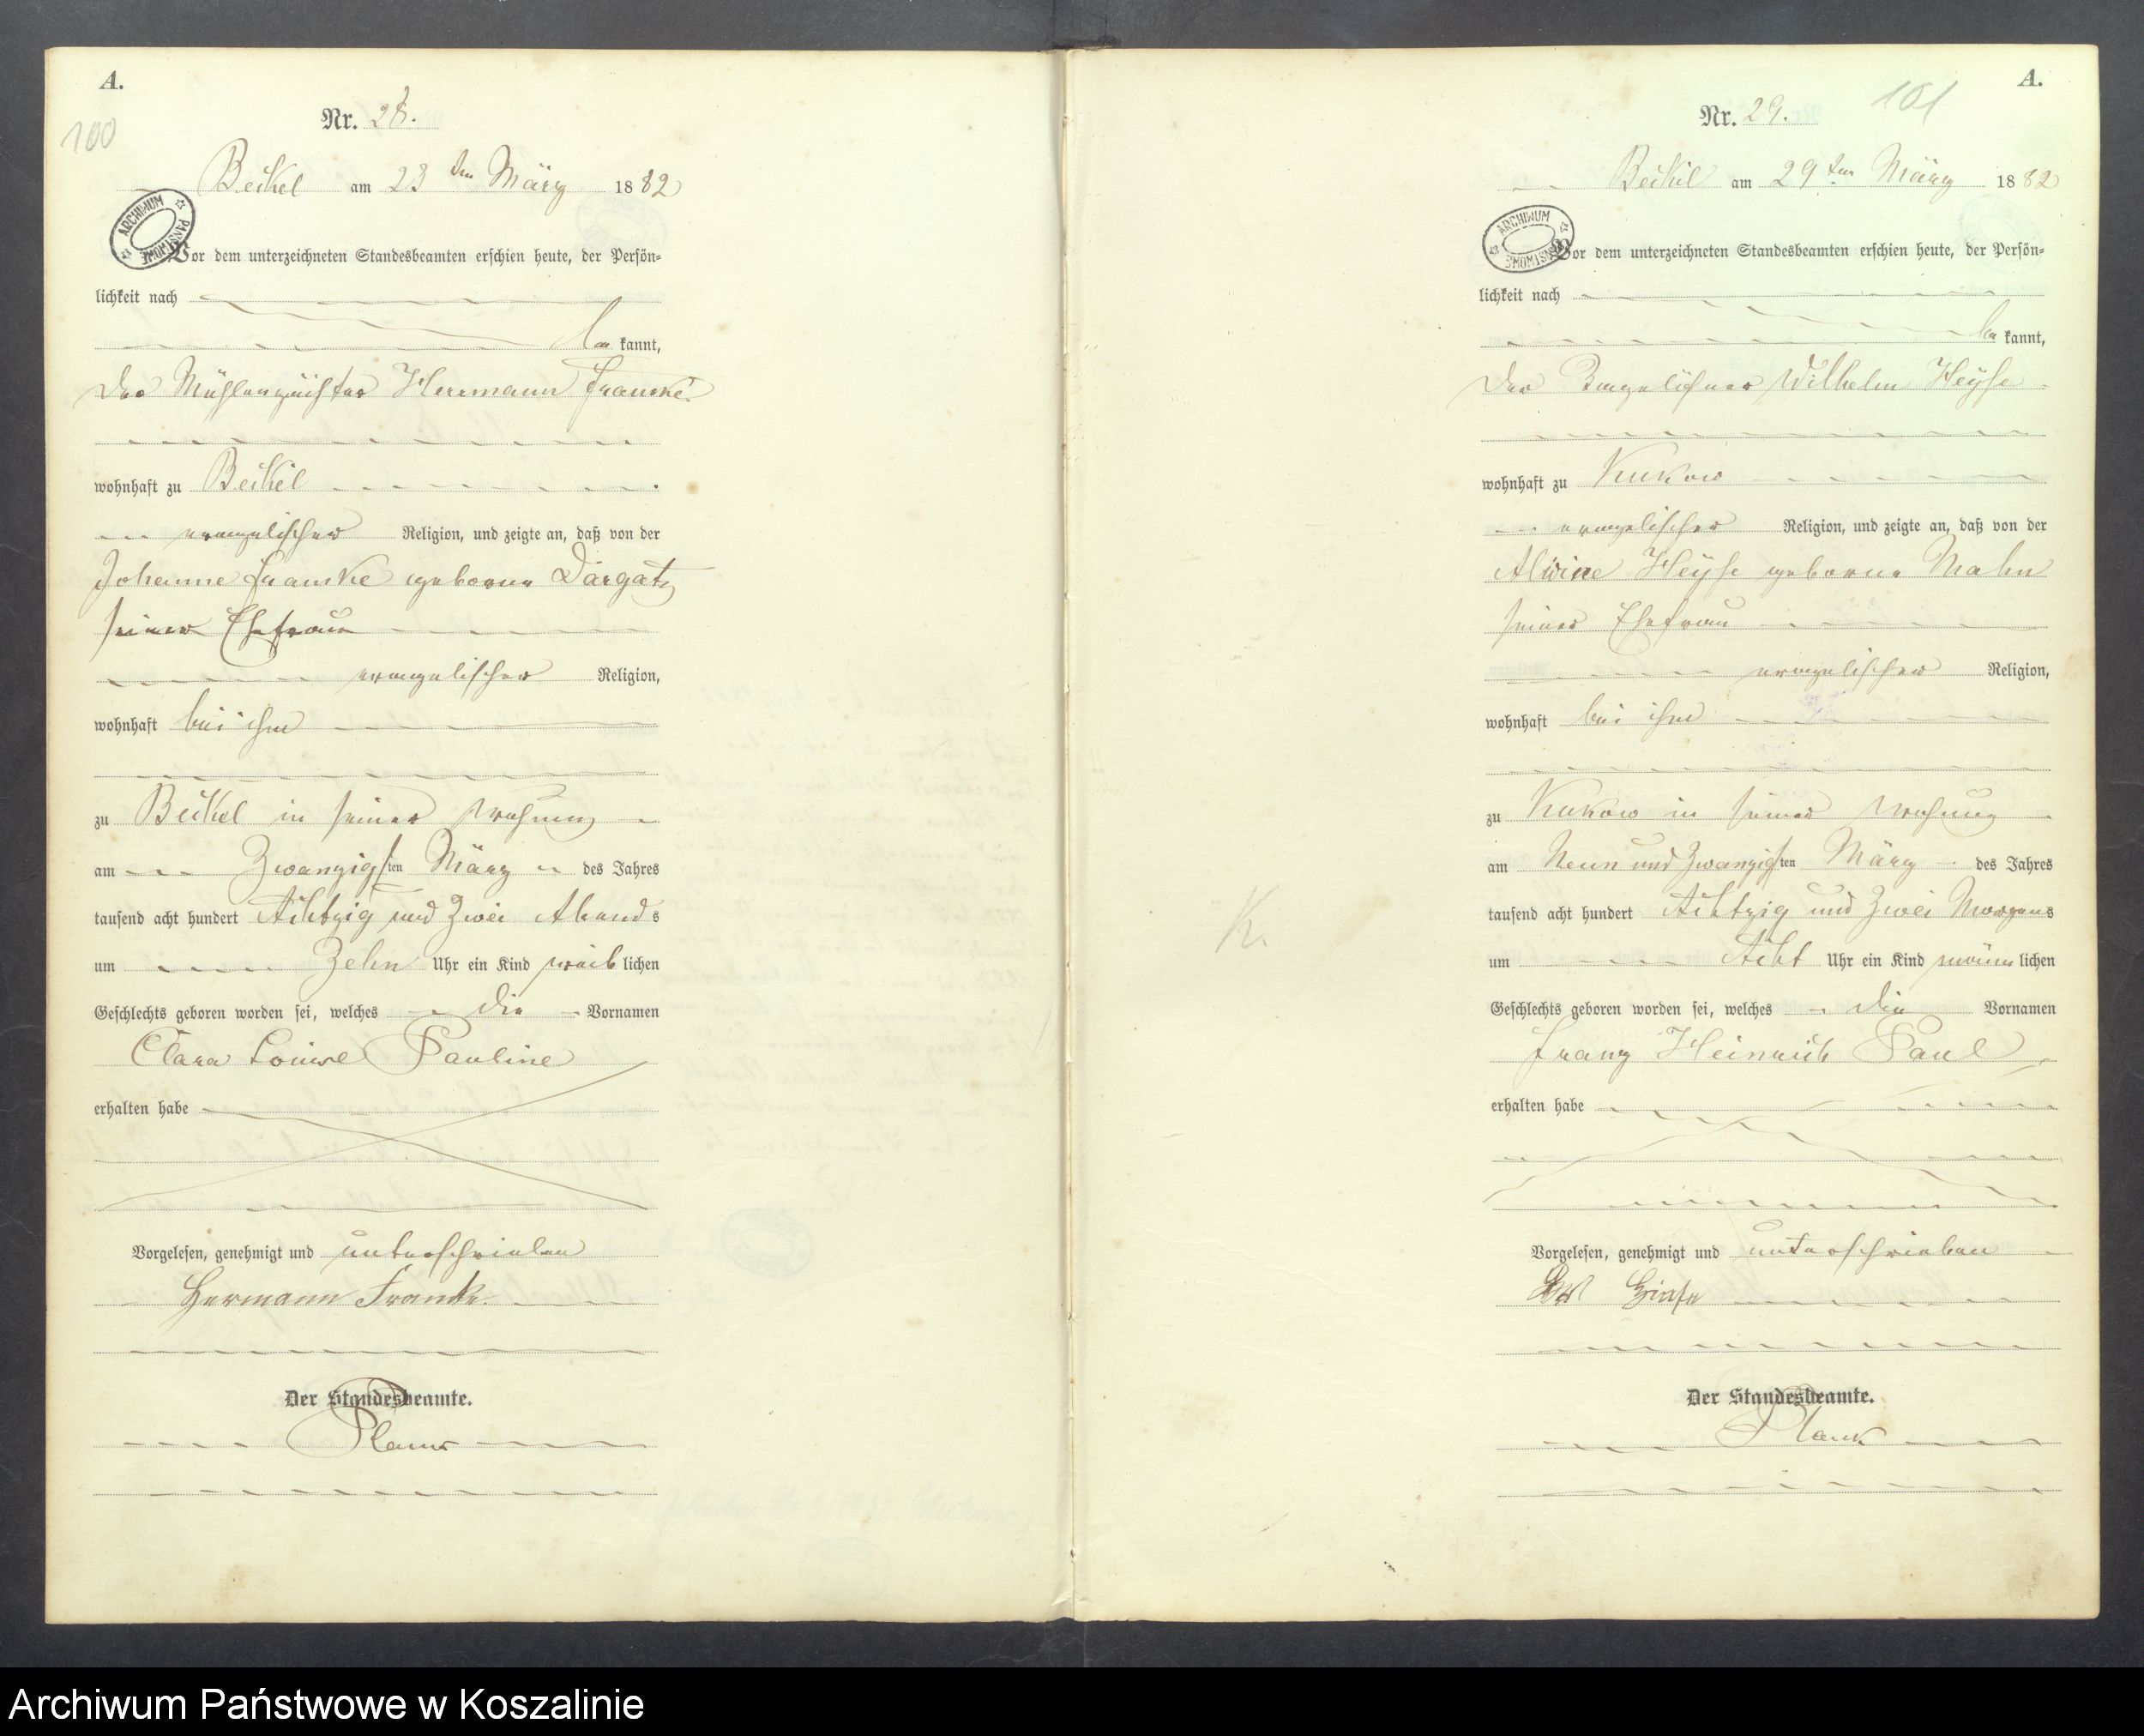 A.
100
Nr. 28.
Beckel am 23ten März 1882
ARCHIWUM PAŃSTWOWE
Vor dem unterzeichneten Standesbeamten erschien heute, der Persön-
lichkeit nach
be kannt,
der Mühlenmeister Herrmann Francke
wohnhaft zu Beckel
evangelischer Religion, und zeigte an, daß von der
Johanne Francke geborne Dargatz
seiner Ehefrau
evangelischer Religion,
wohnhaft bei ihm
zu Beckel in seiner Wohnung
am Zwanzigsten März des Jahres
tausend acht hundert Achtzig und Zwei Abends
um Zehn Uhr ein Kind weib lichen
Geschlechts geboren worden sei, welches die Vornamen
Clara Louise Pauline
erhalten habe
Vorgelesen, genehmigt und unterschrieben
Hermann Francke
Der Standesbeamte.
A.
101
Nr. 29.
Beckel am 29ten März 1882
ARCHIWUM PAŃSTWOWE
Vor dem unterzeichneten Standesbeamten erschien heute, der Persön-
lichkeit nach
be kannt,
der Wilhelm Heyse
wohnhaft zu Kukow
evangelischer Religion, und zeigte an, daß von der
Alwine Heyse geborne Mahn
seiner Ehefrau
evangelischer Religion,
wohnhaft bei ihm
zu Kukow in seiner Wohnung
am Neun und Zwanzigsten März des Jahres
tausend acht hundert Achtzig und Zwei Morgens
um Acht Uhr ein Kind männ lichen
Geschlechts geboren worden sei, welches die Vornamen
Franz Heinrich Paul
erhalten habe
K.
Vorgelesen, genehmigt und unterschrieben
Der Standesbeamte.
Archiwum Państwowe w Koszalinie